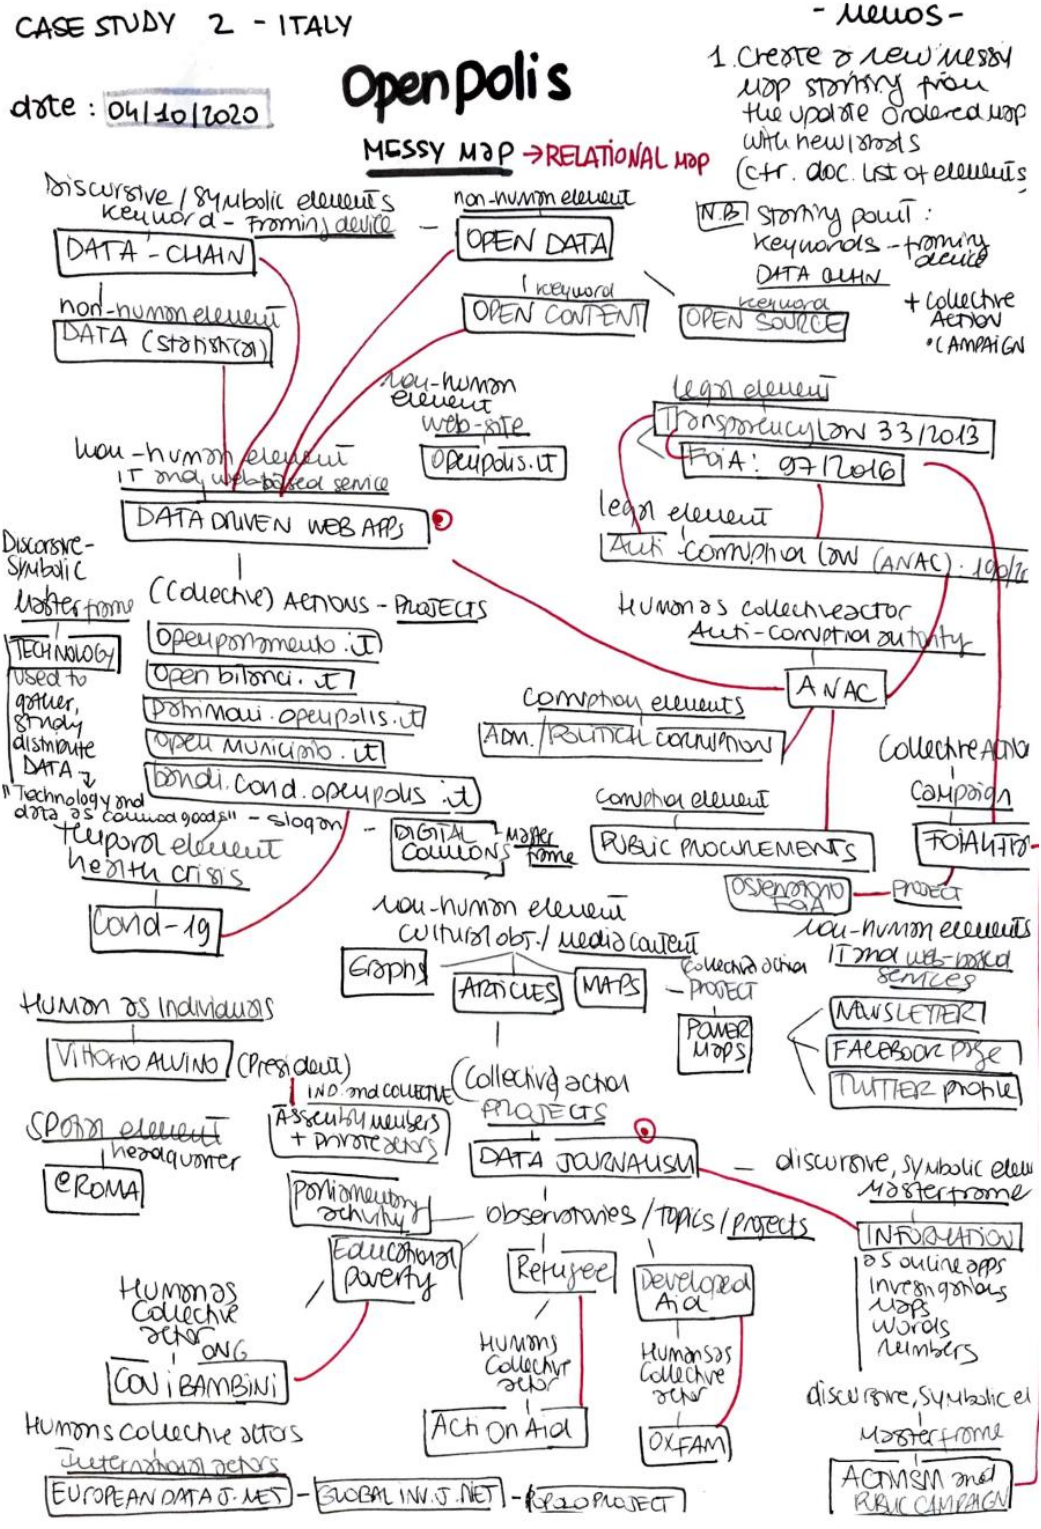 CASE STUDY 2 - ITALY
date : 04/10/2020
Openpolis
MESSY MAP → RELATIONAL MAP
- MEMOS -
1. Create a new messy
map starting from
the update ordered map
with new
(cfr. doc. List of elements
N.B Starting point :
Keywords - framing
device
DATA CHAIN
+ Collective
ACTION
• CAMPAIGN
Discursive / Symbolic elements
Keyword - Framing device -
DATA - CHAIN
non-human element
OPEN DATA
Keyword
OPEN CONTENT
Keyword
OPEN SOURCE
non-human element
DATA (statistical)
non-human
element
web-site
Openpolis.it
Legal element
Transparency Law 33/2013
FOIA: 97/2016
legal element
Anti-corruption law (ANAC) . 190/
Non-human element
IT and web-based service
DATA DRIVEN WEB APPS
Discorsive-
Symbolic
Masterframe
TECHNOLOGY
used to
gather,
study
distribute
DATA
"Technology and
data as common goods" - slogan -
DIGITAL
COMMONS
Master
frame
(Collective) ACTIONS - PROJECTS
Openparlamento.it
Open bilanci.it
patrimoni.openpolis.it
Open Municipio.it
bandi.covid.openpolis.it
Human as collective actor
Anti-corruption autority
ANAC
Corruption elements
ADM./POLITICAL CORRUPTION
Corruption element
PUBLIC PROCUREMENTS
Collective Actio
Campaign
FOIA4ITA
Osservatorio
FOIA
PROJECT
temporal element
health crisis
Covid-19
non-human element
Cultural obj./Media content
Graphs
ARTICLES
MAPS
Collective action
- PROJECT
POWER
MAPS
Non-human elements
IT and web-based
services
NEWSLETTER
FACEBOOK page
TWITTER profile
Human as Individuals
VITTORIO ALVINO (President)
IND. and COLLECTIVE
Assembly members
+ private actors
(Collective) action
PROJECTS
DATA JOURNALISM
Spatial element
headquarter
@ROMA
- discursive, symbolic elem
Masterframe
INFORMATION
as online apps
investigations
Maps
words
numbers
parliamentary
activity
observatories / topics / projects
Educational
poverty
Refugee
Developed
Aid
Human as
Collective
actor
ONG
CON i BAMBINI
Humans
Collective
actor
Action Aid
Humans as
Collective
actor
OXFAM
discursive, Symbolic el
Masterframe
ACTIVISM and
PUBLIC CAMPAIGN
Humans collective actors
International actors
EUROPEAN DATA J.NET - GLOBAL INV.J.NET - POPOLO PROJECT